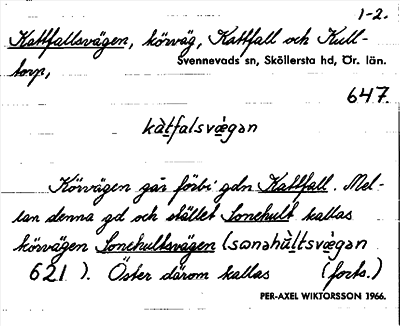 1-2.
Kattfallsvägen, körväg, Kattfall och Kull-
torp,
Svennevads sn, Sköllersta hd, Ör. län.
647.
kàt̲falsvæ̀gən
Körvägen går förbi gdn Kattfall. Mel-
lan denna gd och stället Sonehult kallas
körvägen Sonehultsvägen (sɷnəhùl̲tsvæ̀gən
621). Öster därom kallas (forts.)
PER-AXEL WIKTORSSON 1966.